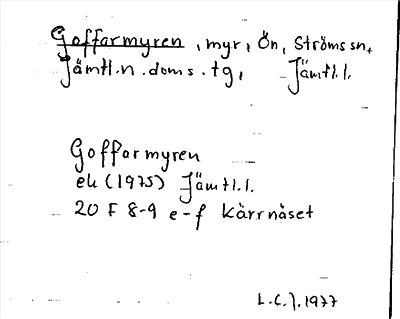 Goffarmyren, myr, Ön, Ströms sn,
Jämtl.n.doms.tg, Jämtl.l.
Goffarmyren
ek (1975) Jämtl.l.
20 F 8-9 e-f Kärrnäset
L.C.J. 1977